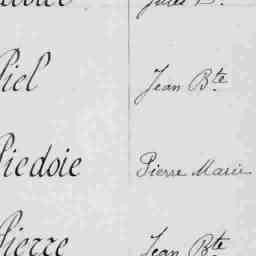 Piel Jean Bte
Piedoie Pierre Marie
Pierre Jean Bte